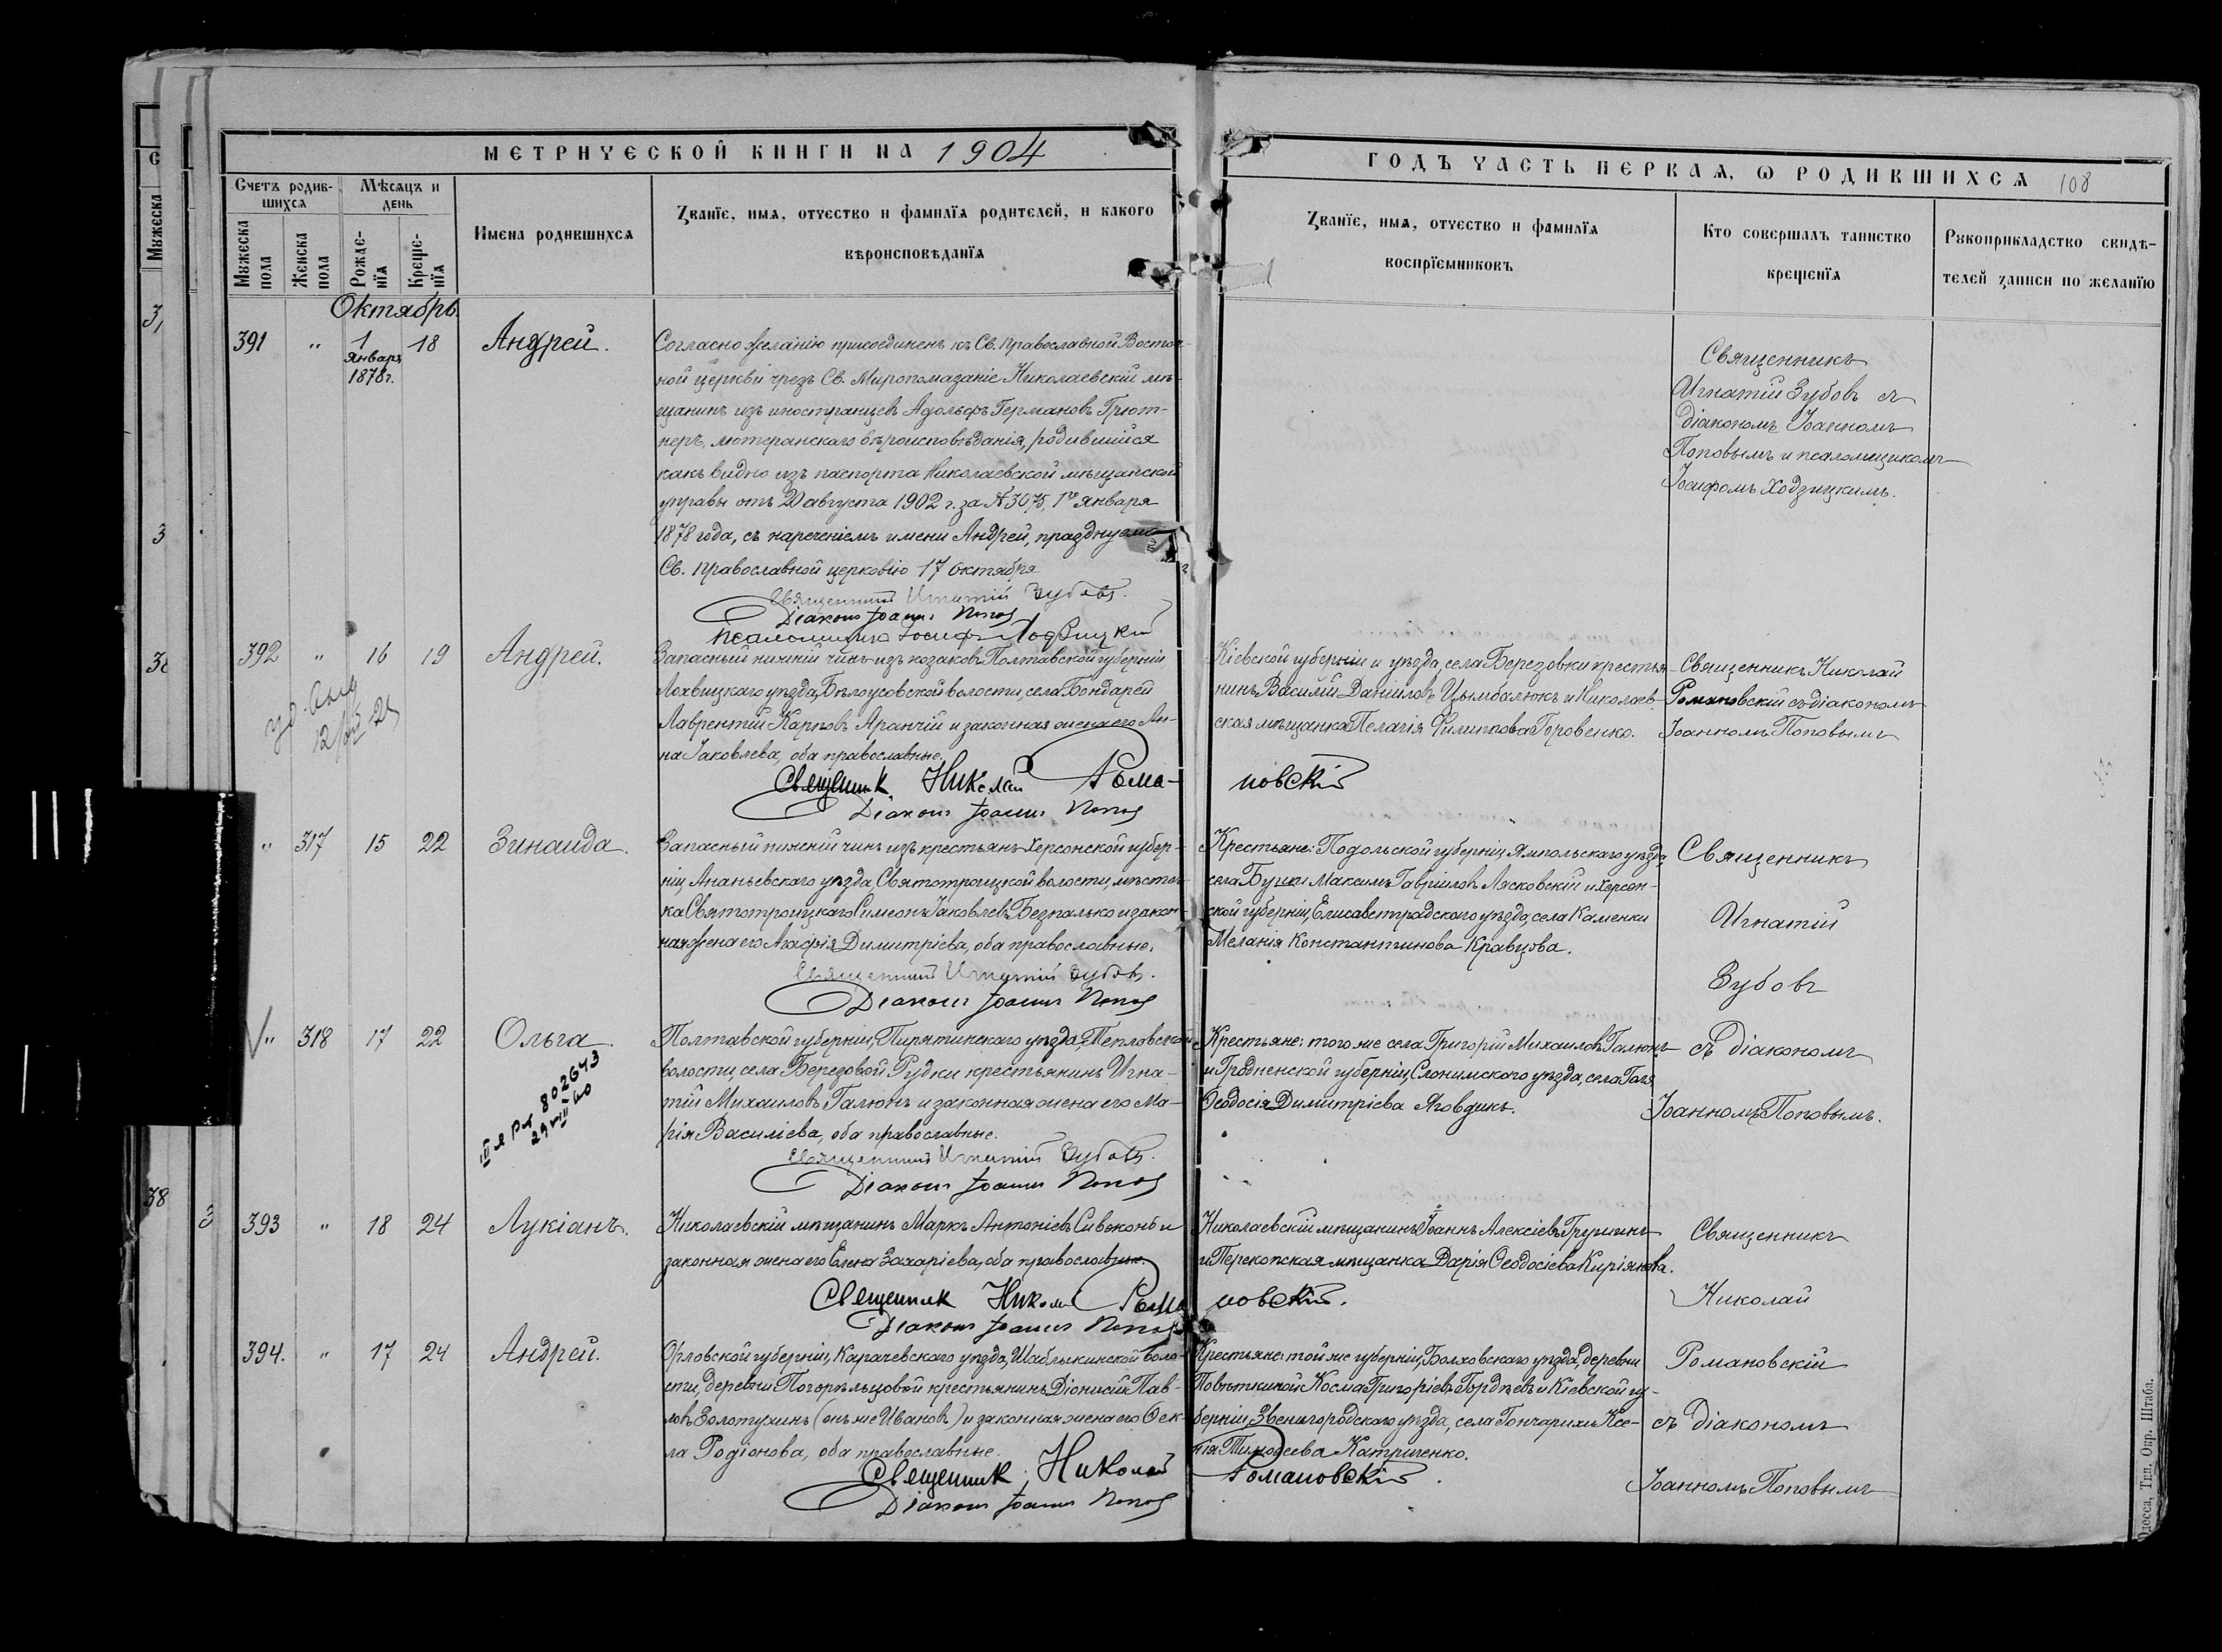 МЕТРИЧЕСКОЙ КНИГИ НА 1904
ГОДЪ ЧАСТЬ ПЕРВАЯ, Ѡ РОДИВШИХСЯ 108
Счетъ родив-
шихся
Мѣсяцъ и
день
Мужеска
пола
Женска
пола
Рожде-
нїя
Креще-
нїя
Имена родившихся
Званїе, имя, отчество и фамилїя родителей, и какого
вѣроисповѣданїя
Званїе, имя, отчество и фамилїя
воспрїемниковъ
Кто совершалъ таинство
крещенїя
Рукоприкладство свидѣ-
телей записи по желанїю
Октябрь.
391 " 1 18 Андрей.
Января
1878 г.
Согласно желанію присоединенъ къ Св. Православной Восточ-
ной церкви чрезъ Св. Миропомазаніе Николаевскій мѣ-
щанинъ изъ иностранцевъ Адольфъ Германовъ Грют-
неръ, лютеранскаго вѣроисповѣданія, родившійся
какъ видно изъ паспорта Николаевской мѣщанской
управы отъ 20 августа 1902 г. за № 3075, 1го Января
1878 года, съ нареченіемъ имени Андрей, празднуем
Св. Православной церковію 17 октября
Священникъ Игнатій Зубовъ.
Діаконъ Іоаннъ Попов
Псаломщикъ Іосифъ Ходзицкій
Священникъ
Игнатій Зубовъ съ
діакономъ Іоанномъ
Поповымъ и псаломщикомъ
Іосифомъ Ходзицкимъ.
392 " 16 19 Андрей.
Запасный нижній чинъ изъ козаковъ Полтавской губерніи
Лохвицкаго уѣзда, Бѣлоусовской волости, села Бондарей
Лаврентій Карповъ Аранчій и законная жена его Ан-
на Іаковлева, оба православные.
Священник Николай Рома-
новскій
Діаконъ Іоаннъ Попов
Кіевской губерніи и уѣзда, села Березовки крестья-
нинъ Василій Даніиловъ Цымбалюкъ и Николаев-
ская мѣщанка Пелагія Филиппова Горовенко.
Священникъ Николай
Романовскій съ діакономъ
Іоанномъ Поповымъ
" 317 15 22 Зинаида.
Запасный нижній чинъ изъ крестьянъ Херсонской губер-
ніи, Ананьевскаго уѣзда, Святотроицкой волости, мѣстеч-
ка Святотроицкаго Симеонъ Іаковлевъ Безпалько и закон-
ная жена его Агафія Димитріева, оба православные.
Священникъ Игнатій Зубовъ.
Діаконъ Іоаннъ Попов
Крестьяне: Подольской губерніи, Ямпольскаго уѣзда,
села Буши Максимъ Гавріиловъ Лясковскій и Херсон-
ской губерніи, Елисаветградскаго уѣзда, села Каменки
Меланія Константинова Кравцова.
Священникъ
Игнатій
Зубовъ
" 318 17 22 Ольга.
802643
Полтавской губерніи, Пирятинскаго уѣзда, Тепловской
волости, села Березовой Рудки крестьянинъ Игна-
тій Михаиловъ Галюнъ и законная жена его Ма-
рія Василіева, оба православные.
Священникъ Игнатій Зубовъ.
Діаконъ Іоаннъ Попов
Крестьяне: того же села Григорій Михаиловъ Галюнъ
и Гродненской губерніи, Слонимскаго уѣзда, села Голя
Ѳеодосія Димитріева Яговдикъ.
съ діакономъ
Іоанномъ Поповымъ.
393 " 18 24 Лукіанъ.
Николаевскій мѣщанинъ Маркъ Антоніевъ Сивоконь и
законная жена его Елена Захаріева, оба православные.
Священник Николай Рома
новскій.
Діаконъ Іоаннъ Попов
Николаевскій мѣщанинъ Іоаннъ Алексіевъ Грушинъ
и Перекопская мѣщанка Дарія Ѳеодосіева Киріянова.
Священникъ
Николай
394. " 17 24 Андрей.
Орловской губерніи, Карачевскаго уѣзда, Шаблыкинской воло-
сти, деревни Погорѣльцовой крестьянинъ Діонисій Пав-
ловъ Золотухинъ (онъ же Ивановъ) и законная жена его Ѳек-
ла Родіонова, оба православные.
Священник Николай
Романовскій.
Діаконъ Іоаннъ Попов
Крестьяне: той же губерніи, Болховскаго уѣзда, деревни
Повѣткиной Косма Григоріевъ Гордѣевъ и Кіевской гу-
берніи, Звенигородскаго уѣзда, села Гончарихи Ксе-
нія Тимоѳеева Катриченко.
Романовскій
съ діакономъ
Іоанномъ Поповымъ
Одесса, Тип. Окр. Штаба.